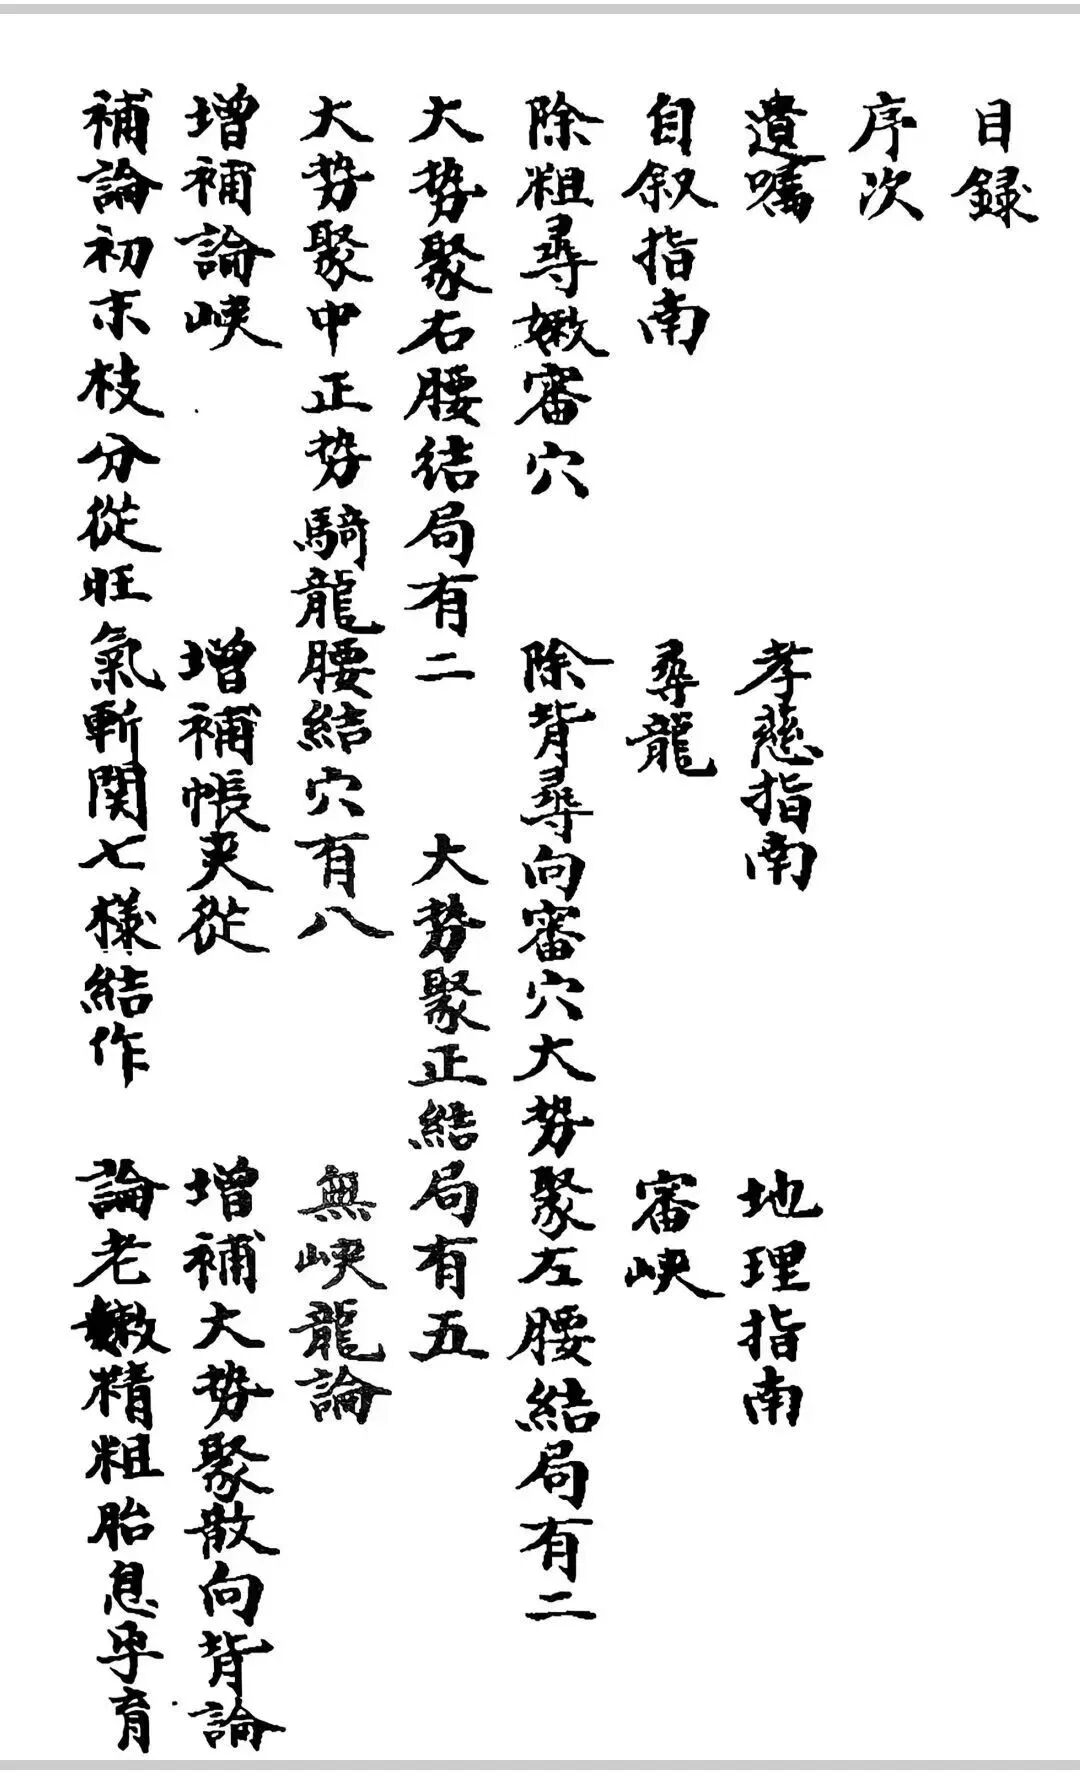 目録
序次
遺嘱　孝慈指南　地理指南
自叙指南　尋龍　審峽
除粗尋嫩審穴　除背尋向審穴大势聚左腰結局有二
大势聚右腰结局有二　大势聚正結局有五
大势聚中正势騎龍腰結穴有八　無峽龍論
增補論峽　增補帳夹從　增補大势聚散向背論
補論初末枝分從旺氣斬関七樣結作　論老嫩精粗胎息孕育